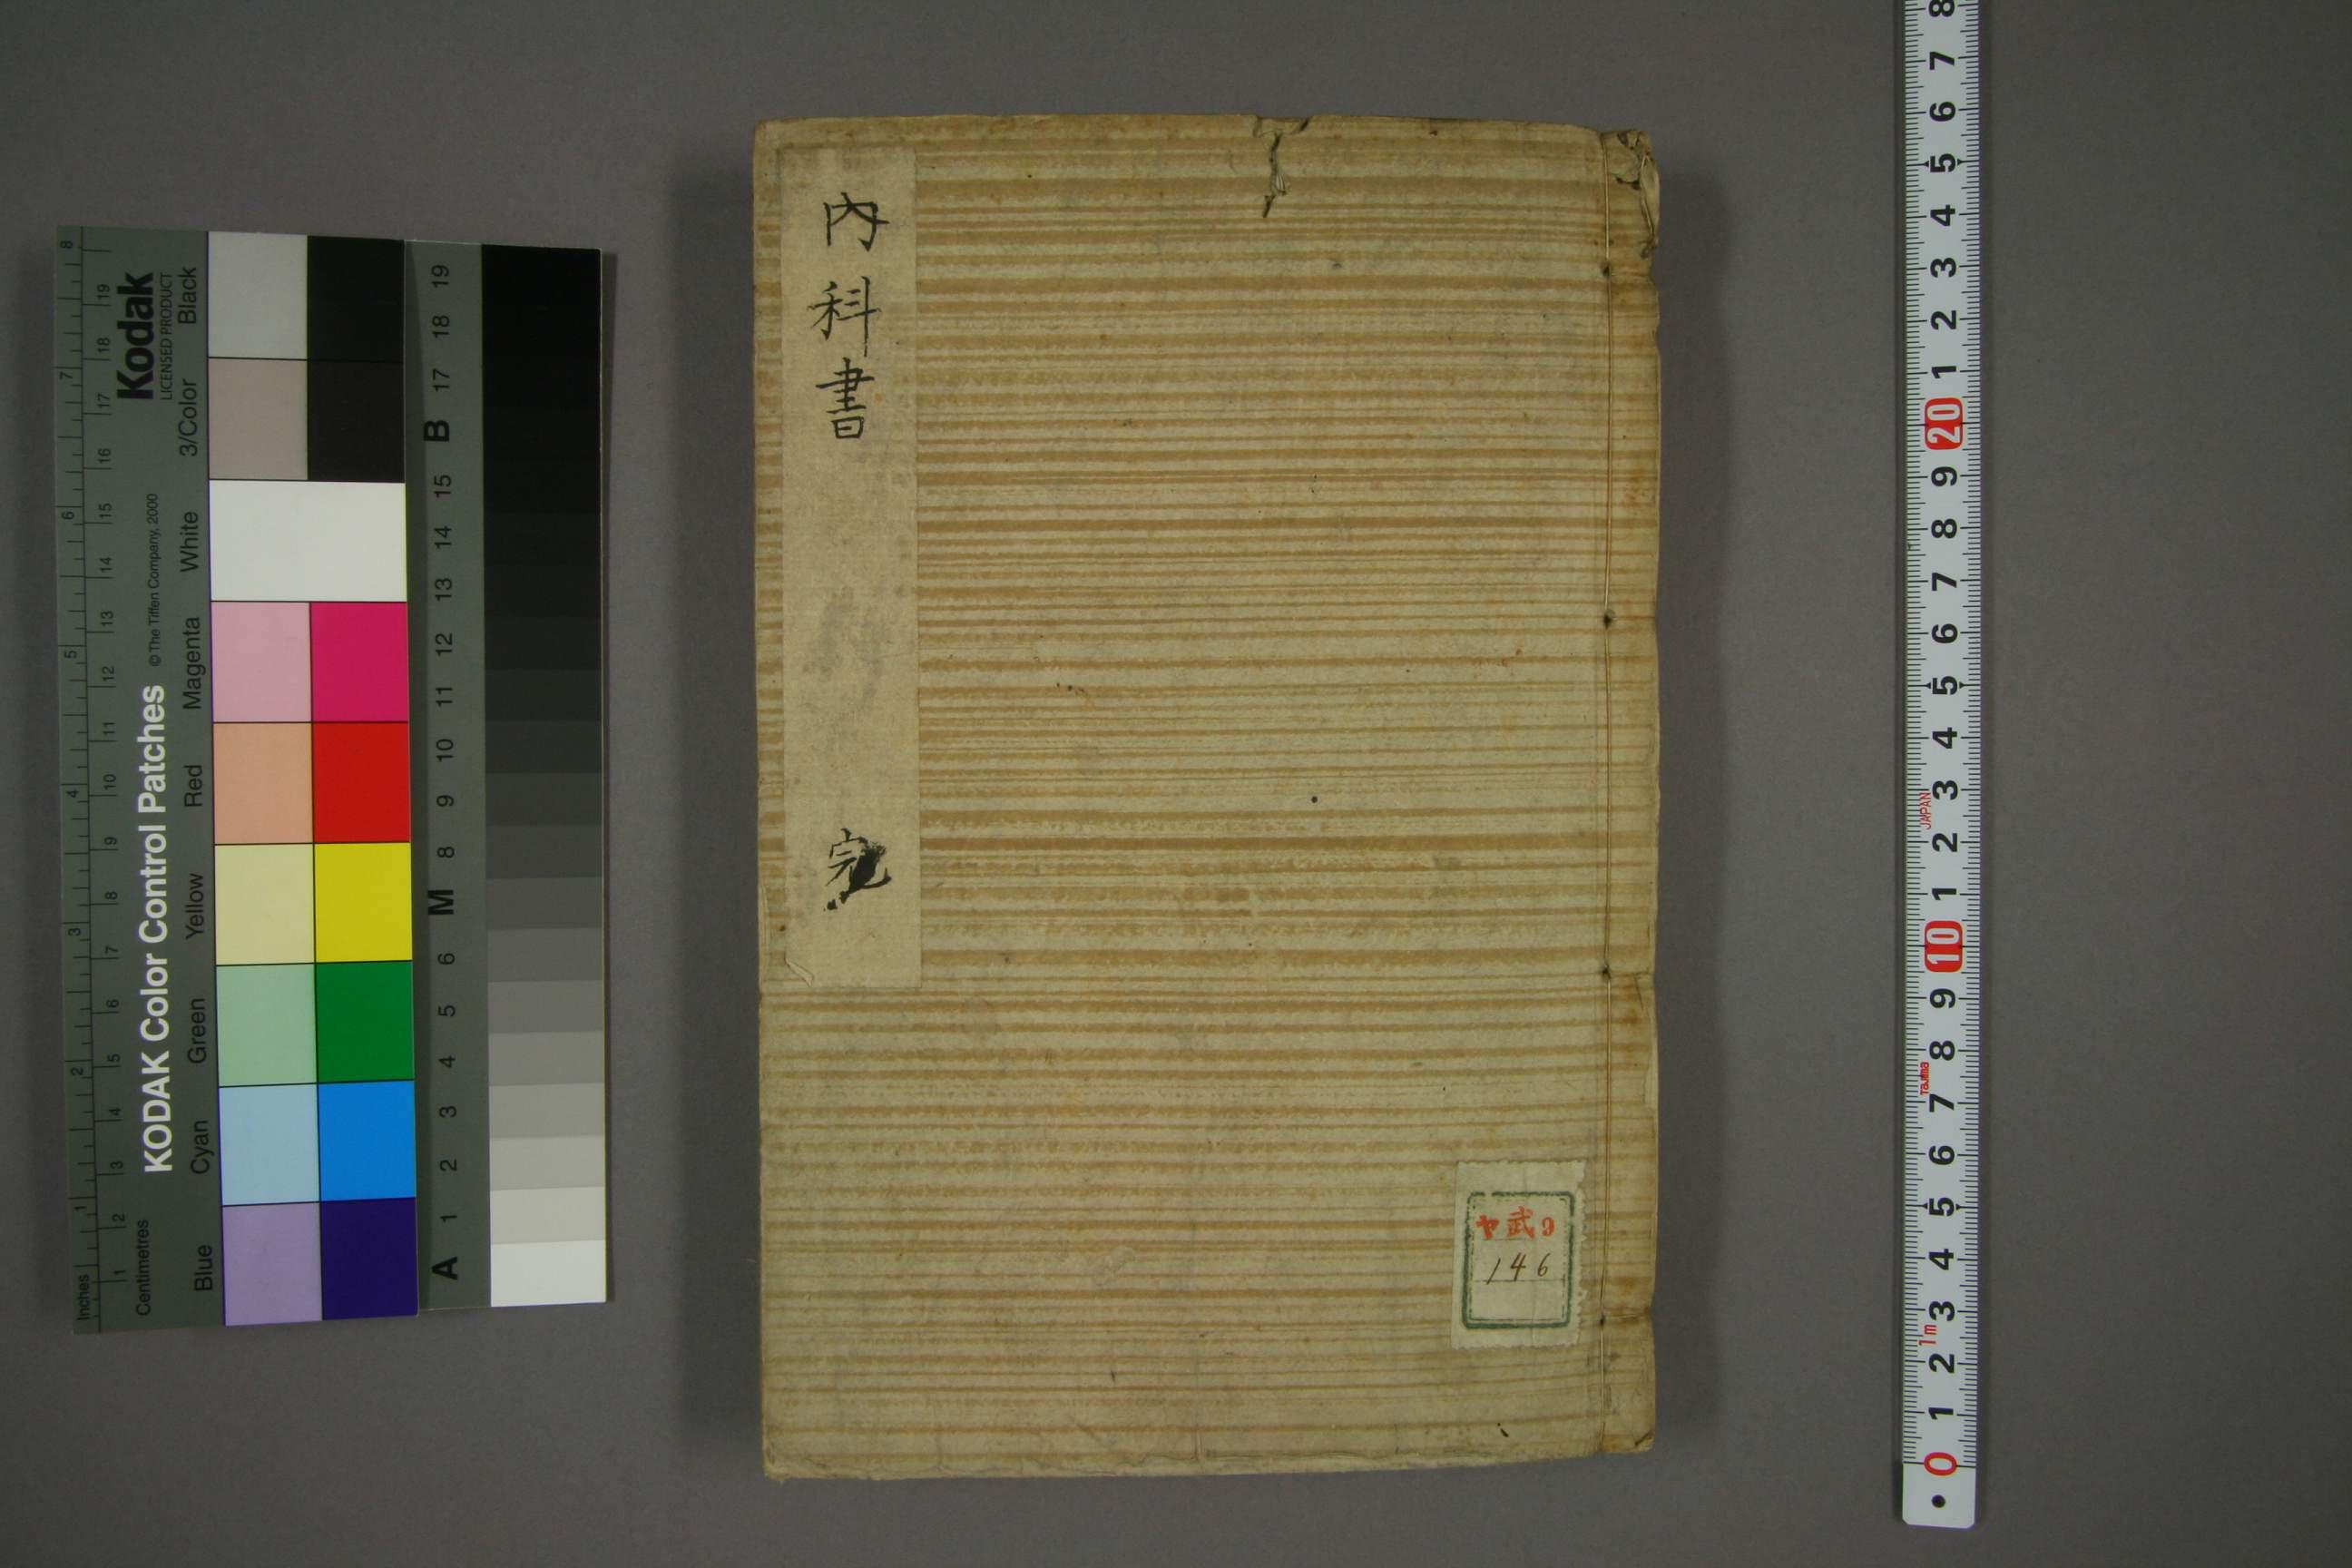 內科書
完
ヤ武9
146
Kodak
LICENSED PRODUCT
KODAK Color Control Patches
© The Tiffen Company, 2000
Inches
1 2 3 4 5 6 7 8
Centimetres
1 2 3 4 5 6 7 8 9 10 11 12 13 14 15 16 17 18 19
Blue Cyan Green Yellow Red Magenta White 3/Color Black
A 1 2 3 4 5 6 M 8 9 10 11 12 13 14 15 B 17 18 19
8
7
6
5
4
3
2
1
20
9
8
7
6
5
4
3
JAPAN
2
1
10
9
8
Tajima
7
6
5
4
3
1m
2
1
0